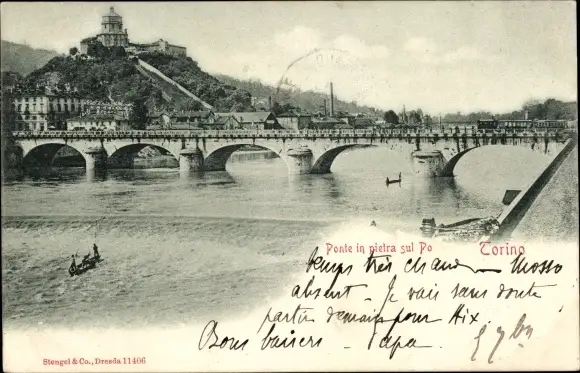 Ponte in pietra sul Po Torino
Temps très chaud — Mosso
absent - Je vais sans doute
partir demain pour Aix
Bons baisers - Papa.
Stengel & Co., Dresda 11406